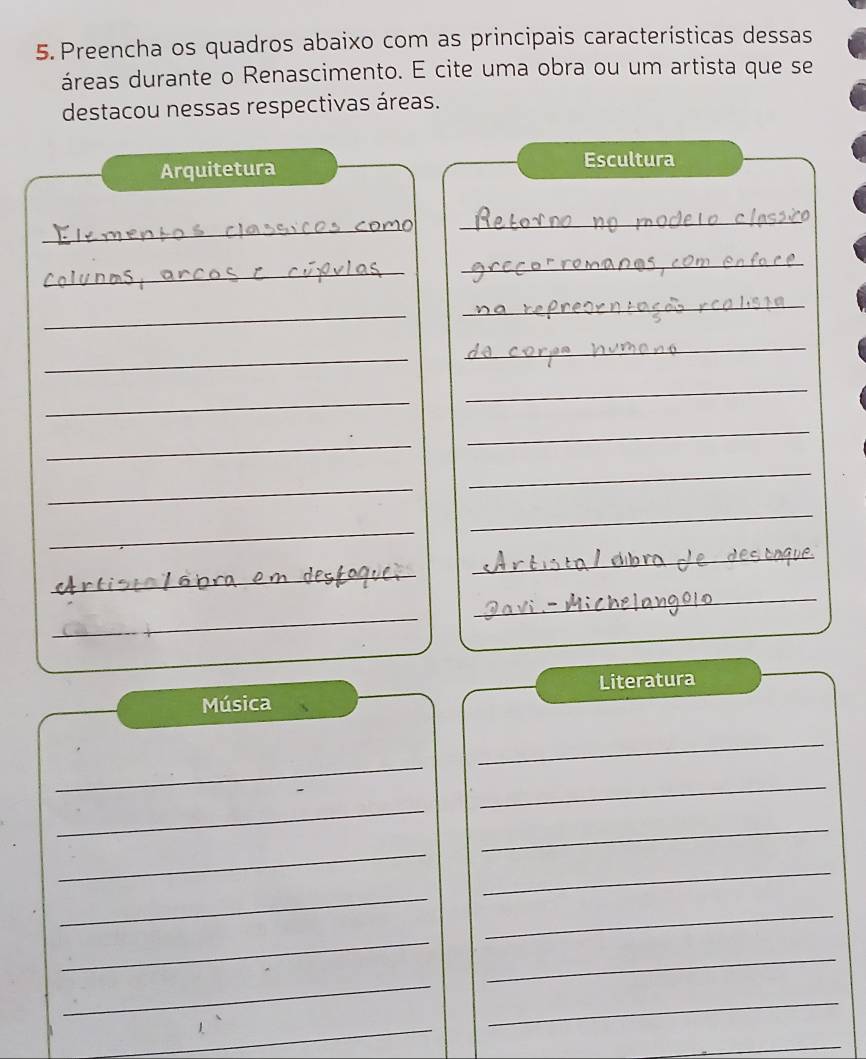 5. Preencha os quadros abaixo com as principais características dessas
áreas durante o Renascimento. E cite uma obra ou um artista que se
destacou nessas respectivas áreas.
Arquitetura
Elementos classicos como
colunas, arcos e cúpulas
Artista/obra em destaque:
Escultura
Retorno no modelo classico
greco-romanos, com enface
na representação realista
do corpo humano
Artista/obra de destaque
Davi - Michelangolo
Música
Literatura